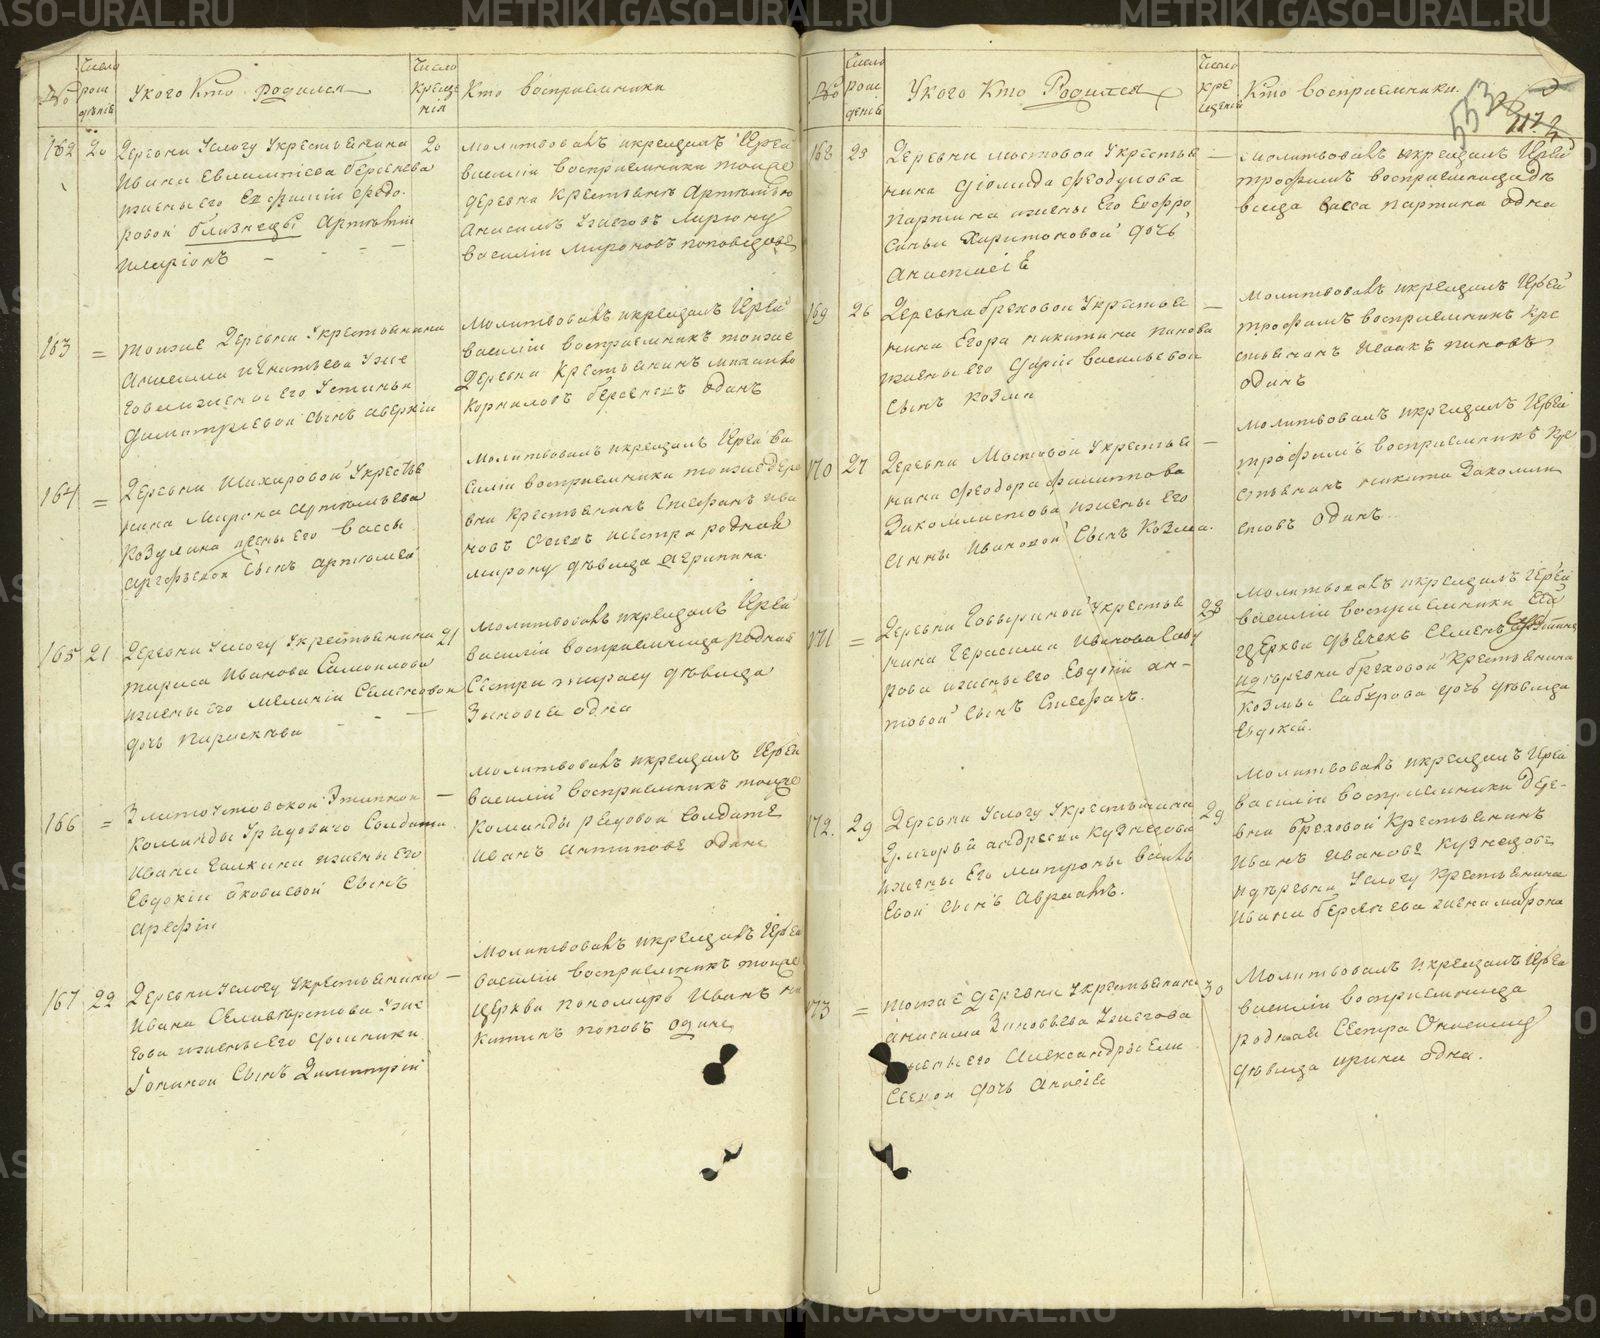 №
Число рождениѣ
У кого Кто Родился
Число крещенiя
Кто восприемники
162
20
Деревни Уелогу Укрестьянина
Ивана Евлампiева берсенева
ижены его Ефимiи Федо
ровой близнецы Артемiй
илларiонъ
20
Молитвовалъ икрещалъ Iерей
василiй восприемники тоиже
деревни крестьянъ
василiй мироновъ
163
=
тоиже Деревни Укрестьянина
игнатьева Уже
гова ижены его Устиньи
Димитрiевой сынъ аверкiй
Молитвовалъ икрещалъ Iерей
василiй восприемникъ тоиже
Деревни Крестьянинъ
корниловъ берсеневъ одинъ
164
=
Деревни Шахировой Укрестья
нина Мирона артемьева
козулина жены его вассы
сынъ артемей
Молитвовалъ икрещалъ Iерей ва
силiй восприемники тоиже дере
вни крестьянинъ Стефанъ ива
новъ исестра родная
мирону девица агрипина
165
21
Деревни Уелогу Укрестьянина
тараса Иванова Самоилова
ижены его меланiи Семеновой
дочь параскева
21
Молитвовалъ икрещалъ Iерей
василiй восприемница родная
Сестра тарасу девица
Зиновiя одна
166
=
Златоустовской Этапной
команды Урядового Солдата
Ивана Галкина ижены его
Евдокiи Яковлевой Сынъ
арефiй
—
Молитвовалъ икрещалъ Iерей
василiй восприемникъ тоиже
команды рядовой Солдатъ
иванъ антиповъ одинъ
167
22
Деревни Уелогу Укрестьянина
Ивана Селиверстова Уже
гова ижены его Домники
Фоминой Сынъ Димитрiй
—
Молитвовалъ икрещалъ Iерей
василiй восприемникъ тоиже
церкви пономарь Иванъ Ни
китинъ поповъ одинъ
№
Число рождень
У кого Кто Родился
Число крещенiя
Кто восприемники.
553
117
168
23
Деревни мостовой Укрестья
нина Дiомида Феодулова
Паргина ижены Его Евфро
синьи Харитоновой дочь
анастасiя
—
Молитвовалъ икрещалъ Iерей
трофимъ восприемница де
вица васса паргина одна
169
26
Деревни бреховой Укрестья
нина Егора никитина панова
ижены его Дарiи васильевой
сынъ козма
—
Молитвовалъ икрещалъ Iерей
трофимъ восприемникъ кре
стьянинъ Исаакъ пановъ
одинъ
170
27
Деревни Мостовой Укрестья
нина Феодора филиппова
ижены Его
анны Ивановой Сынъ Козма.
—
Молитвовалъ икрещалъ Iерей
трофимъ восприемникъ кре
стьянинъ никита
стовъ одинъ
171
=
Деревни Говыриной Укрестья
нина Герасима Иванова Сабу
рова ижены его Евдокiи ан-
товой Сынъ Стефанъ.
28
Молитвовалъ икрещалъ Iерей
василiй восприемники Ея
церкви дьячекъ Семенъ
идеревни бреховой крестьянина
козмы Сабурова дочь девица
Евдокiя.
172.
29
Деревни Уелогу Укрестьянина
Григорья андреева Кузнецова
ижены Его матроны василь
евой сынъ Авраамъ.
29
Молитвовалъ икрещалъ Iерей
василiй восприемники Дере-
вни бреховой Крестьянинъ
Иванъ Ивановъ Кузнецовъ
идеревни Уелогу Крестьянина
Ивана берсенева жена матрона
173
=
тоиже деревни Укрестьянина
анисима Зиновьева Ужегова
ижены его Александры Ели
сеевой дочь
30
Молитвовалъ икрещалъ Iерей
василiй восприемница
родная сестра Онисима
девица ирина одна.